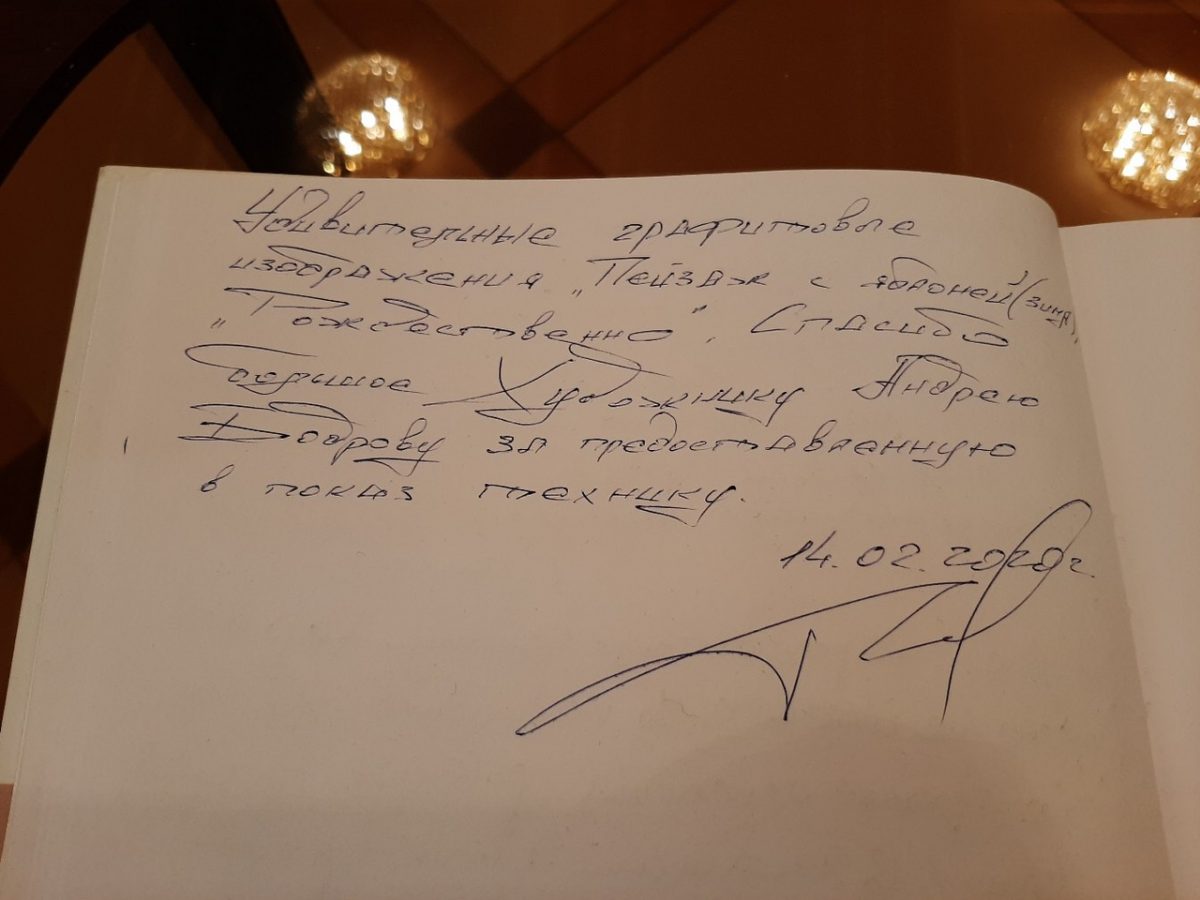 Удивительные графитовые
изображения „Пейзаж с яблоней" (зима),
„Рождественно". Спасибо
большое Художнику Андрею
Боброву за предоставленную
в показ технику.
14.02.2020г.